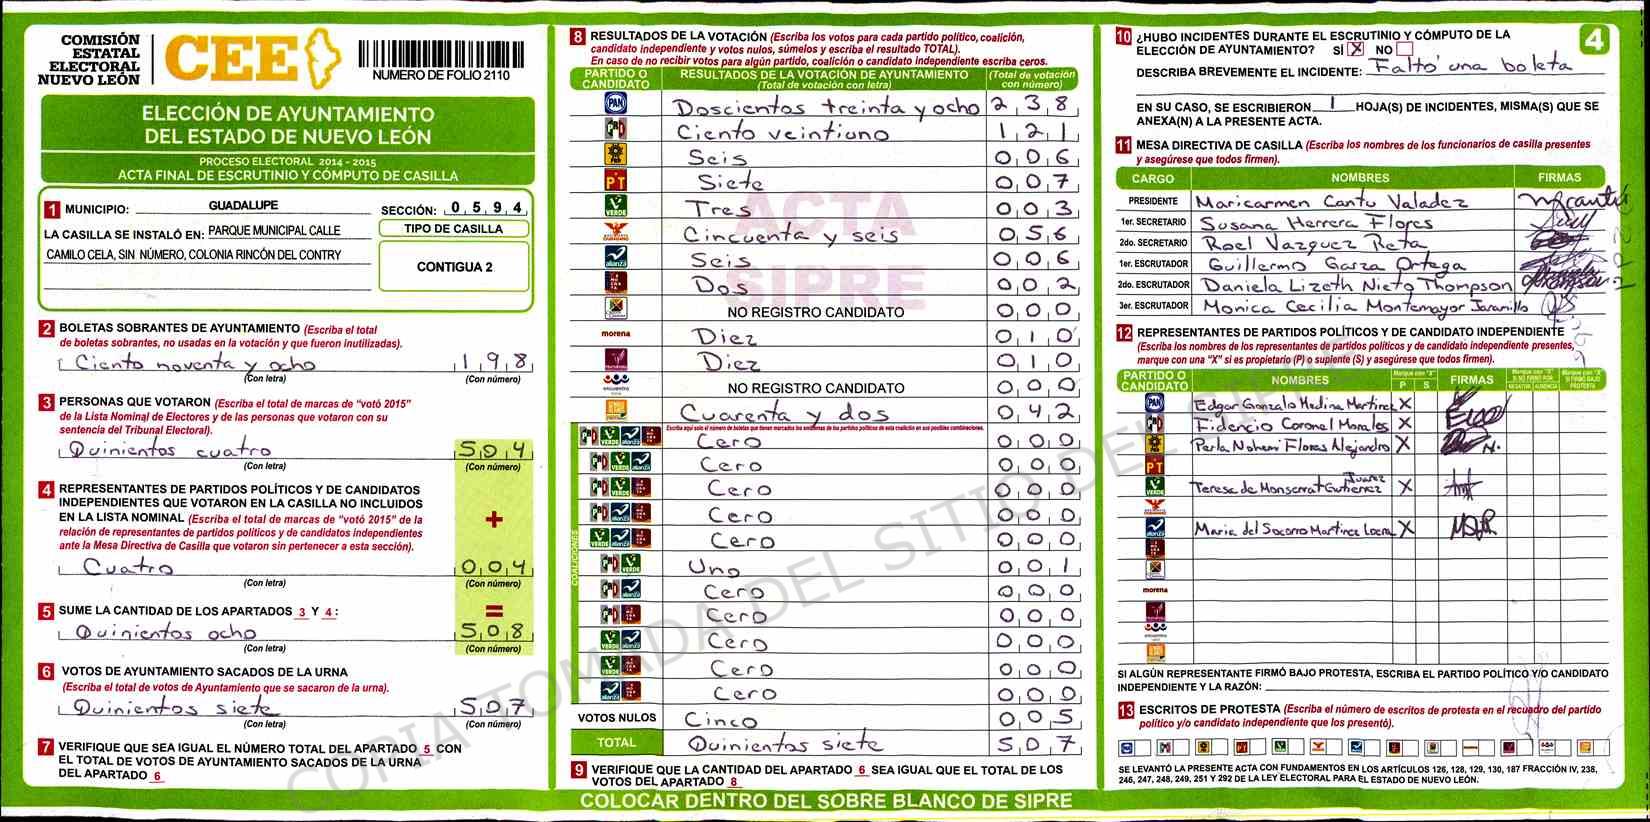 COMISIÓN
ESTATAL
ELECTORAL
NUEVO LEÓN
CEE
NUMERO DE FOLIO 2110
ELECCIÓN DE AYUNTAMIENTO
DEL ESTADO DE NUEVO LEÓN
PROCESO ELECTORAL 2014 - 2015
ACTA FINAL DE ESCRUTINIO Y CÓMPUTO DE CASILLA
1 MUNICIPIO: GUADALUPE SECCIÓN: 0 5 9 4
LA CASILLA SE INSTALÓ EN: PARQUE MUNICIPAL CALLE
CAMILO CELA, SIN NÚMERO, COLONIA RINCÓN DEL CONTRY
TIPO DE CASILLA
CONTIGUA 2
2 BOLETAS SOBRANTES DE AYUNTAMIENTO (Escriba el total
de boletas sobrantes, no usadas en la votación y que fueron inutilizadas).
Ciento noventa y ocho 1 9 8
(Con letra) (Con número)
3 PERSONAS QUE VOTARON (Escriba el total de marcas de “votó 2015”
de la Lista Nominal de Electores y de las personas que votaron con su
sentencia del Tribunal Electoral).
Quinientos cuatro 5 0 4
(Con letra) (Con número)
4 REPRESENTANTES DE PARTIDOS POLÍTICOS Y DE CANDIDATOS
INDEPENDIENTES QUE VOTARON EN LA CASILLA NO INCLUIDOS
EN LA LISTA NOMINAL (Escriba el total de marcas de “votó 2015” de la
relación de representantes de partidos políticos y de candidatos independientes
ante la Mesa Directiva de Casilla que votaron sin pertenecer a esta sección).
+
Cuatro 0 0 4
(Con letra) (Con número)
5 SUME LA CANTIDAD DE LOS APARTADOS 3 Y 4 : =
Quinientos ocho 5 0 8
(Con letra) (Con número)
6 VOTOS DE AYUNTAMIENTO SACADOS DE LA URNA
(Escriba el total de votos de Ayuntamiento que se sacaron de la urna).
Quinientos siete 5 0 7
(Con letra) (Con número)
7 VERIFIQUE QUE SEA IGUAL EL NÚMERO TOTAL DEL APARTADO 5 CON
EL TOTAL DE VOTOS DE AYUNTAMIENTO SACADOS DE LA URNA
DEL APARTADO 6
8 RESULTADOS DE LA VOTACIÓN (Escriba los votos para cada partido político, coalición,
candidato independiente y votos nulos, súmelos y escriba el resultado TOTAL).
En caso de no recibir votos para algún partido, coalición o candidato independiente escriba ceros.
PARTIDO O CANDIDATO RESULTADOS DE LA VOTACIÓN DE AYUNTAMIENTO (Total de votación con letra) (Total de votación con número)
PAN Doscientos treinta y ocho 2 3 8
PRD Ciento veintiuno 1 2 1
PRD Seis 0 0 6
PT Siete 0 0 7
VERDE Tres 0 0 3
Cincuenta y seis 0 5 6
alianza Seis 0 0 6
Dos 0 0 2
NO REGISTRO CANDIDATO 0 0 0
morena Diez 0 1 0
Diez 0 1 0
encuentro NO REGISTRO CANDIDATO 0 0 0
Cuarenta y dos 0 4 2
COALICIONES
Escriba aquí solo el número de boletas que tienen marcados los emblemas de los partidos políticos de esta coalición en sus posibles combinaciones.
Cero 0 0 0
Cero 0 0 0
Cero 0 0 0
Cero 0 0 0
Cero 0 0 0
Uno 0 0 1
Cero 0 0 0
Cero 0 0 0
Cero 0 0 0
Cero 0 0 0
Cero 0 0 0
VOTOS NULOS Cinco 0 0 5
TOTAL Quinientos siete 5 0 7
9 VERIFIQUE QUE LA CANTIDAD DEL APARTADO 6 SEA IGUAL QUE EL TOTAL DE LOS
VOTOS DEL APARTADO 8
ACTA
SIPRE
10 ¿HUBO INCIDENTES DURANTE EL ESCRUTINIO Y CÓMPUTO DE LA
ELECCIÓN DE AYUNTAMIENTO? SÍ X NO
4
DESCRIBA BREVEMENTE EL INCIDENTE: Faltó una boleta
EN SU CASO, SE ESCRIBIERON 1 HOJA(S) DE INCIDENTES, MISMA(S) QUE SE
ANEXA(N) A LA PRESENTE ACTA.
11 MESA DIRECTIVA DE CASILLA (Escriba los nombres de los funcionarios de casilla presentes
y asegúrese que todos firmen).
CARGO NOMBRES FIRMAS
PRESIDENTE Maricarmen Cantu Valadez
1er. SECRETARIO Susana Herrera Flores
2do. SECRETARIO Roel Vazquez Reta
1er. ESCRUTADOR Guillermo Garza Ortega
2do. ESCRUTADOR Daniela Lizeth Nieto Thompson
3er. ESCRUTADOR Monica Cecilia Montemayor Jaramillo
12 REPRESENTANTES DE PARTIDOS POLÍTICOS Y DE CANDIDATO INDEPENDIENTE
(Escriba los nombres de los representantes de partidos políticos y de candidato independiente presentes,
marque con una “X” si es propietario (P) o suplente (S) y asegúrese que todos firmen).
PARTIDO O CANDIDATO NOMBRES Marque con "X" P S FIRMAS
PAN Edgar Gonzalo Medina Martinez X
Fidencio Coronel Morales X
PRD Perla Nohemi Flores Alejandro X
PT
VERDE Teresa de Monserrat Gutierrez Juarez X
alianza Maria del Socorro Martinez X
morena
SI ALGÚN REPRESENTANTE FIRMÓ BAJO PROTESTA, ESCRIBA EL PARTIDO POLÍTICO Y/O CANDIDATO
INDEPENDIENTE Y LA RAZÓN:
13 ESCRITOS DE PROTESTA (Escriba el número de escritos de protesta en el recuadro del partido
político y/o candidato independiente que los presentó).
SE LEVANTÓ LA PRESENTE ACTA CON FUNDAMENTOS EN LOS ARTÍCULOS 126, 128, 129, 130, 187 FRACCIÓN IV, 238,
246, 247, 248, 249, 251 Y 292 DE LA LEY ELECTORAL PARA EL ESTADO DE NUEVO LEÓN.
COLOCAR DENTRO DEL SOBRE BLANCO DE SIPRE
COPIA TOMADA DEL SITIO DEL SIPRE